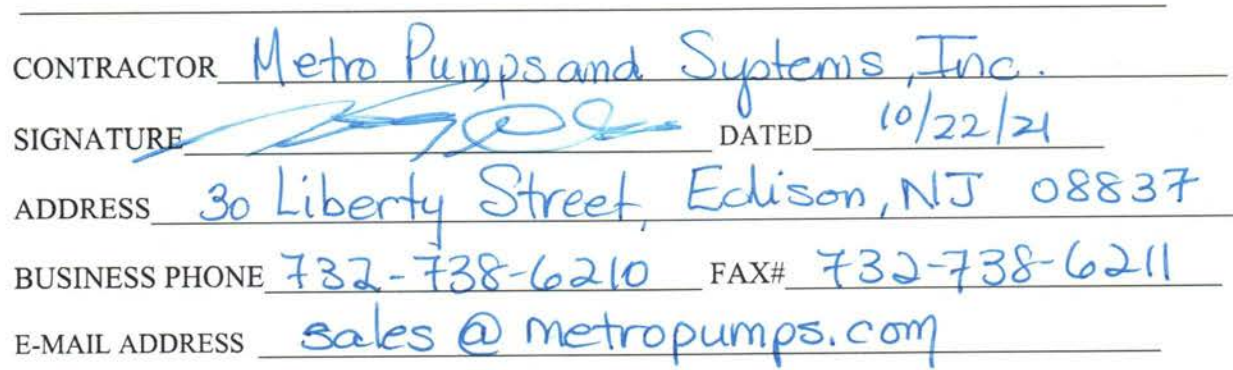 CONTRACTOR Metro Pumps and Systems, Inc.
SIGNATURE DATED 10/22/21
ADDRESS 30 Liberty Street, Edison, NJ 08837
BUSINESS PHONE 732-738-6210 FAX# 732-738-6211
E-MAIL ADDRESS sales@metropumps.com